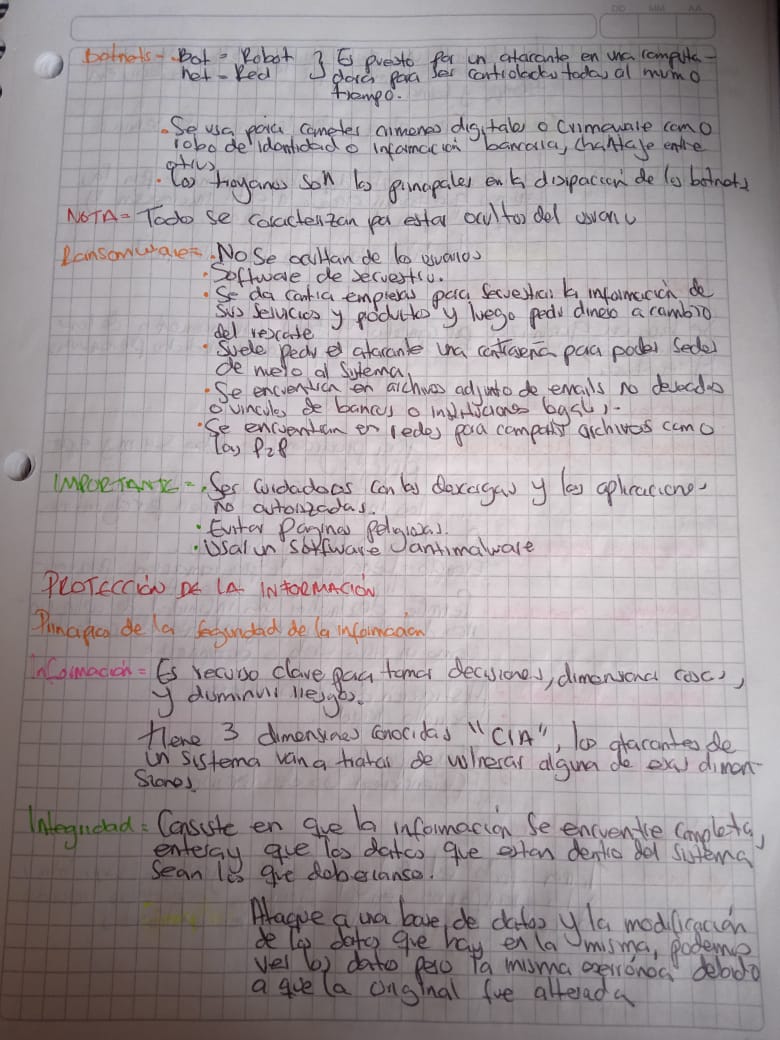 DD MM AA
Botnets - Bot = Robot } Es puesto por un atacante en una computa-
net - Red dora para ser controlados todas al mismo
tiempo.
• Se usa para cometer crimenes digitales o Crimeware como
robo de identidad o información bancaria, chantaje entre
otros
• Los troyanos son los principales en la disipación de los botnets
NOTA = Todo se caracterizan por estar ocultos del usuario
Ransomware = • No Se ocultan de los usuarios
• Software de secuestro.
• Se da contra empresas para secuestrar la información de
sus servicios y productos y luego pedir dinero a cambio
del rescate
• Suele pedir el atacante una contraseña para poder ceder
de nuevo al sistema
• Se encuentra en archivos adjunto de emails no deseados
o vinculos de bancos o instituciones
• Se encuentran en redes para compartir archivos como
las P2P
IMPORTANTE = • Ser cuidadosos con las descargas y las aplicaciones
no autorizadas.
• Evitar Paginas Peligrosas.
• Usar un software antimalware
PROTECCIÓN DE LA INFORMACIÓN
Principios de la Seguridad de la información
Información = Es recurso clave para tomar decisiones, dimensionar cosas,
y disminuir riesgos.
tiene 3 dimensiones conocidas "CIA", los atacantes de
un sistema van a tratar de vulnerar alguna de esas dimen-
siones.
Integridad = Consiste en que la información se encuentre completa,
entera y que los datos que estan dentro del sistema
sean los que deberian ser.
Ataque a una base de datos y la modificación
de los datos que hay en la misma, podemos
ver los datos pero la misma es errónea debido
a que la original fue alterada